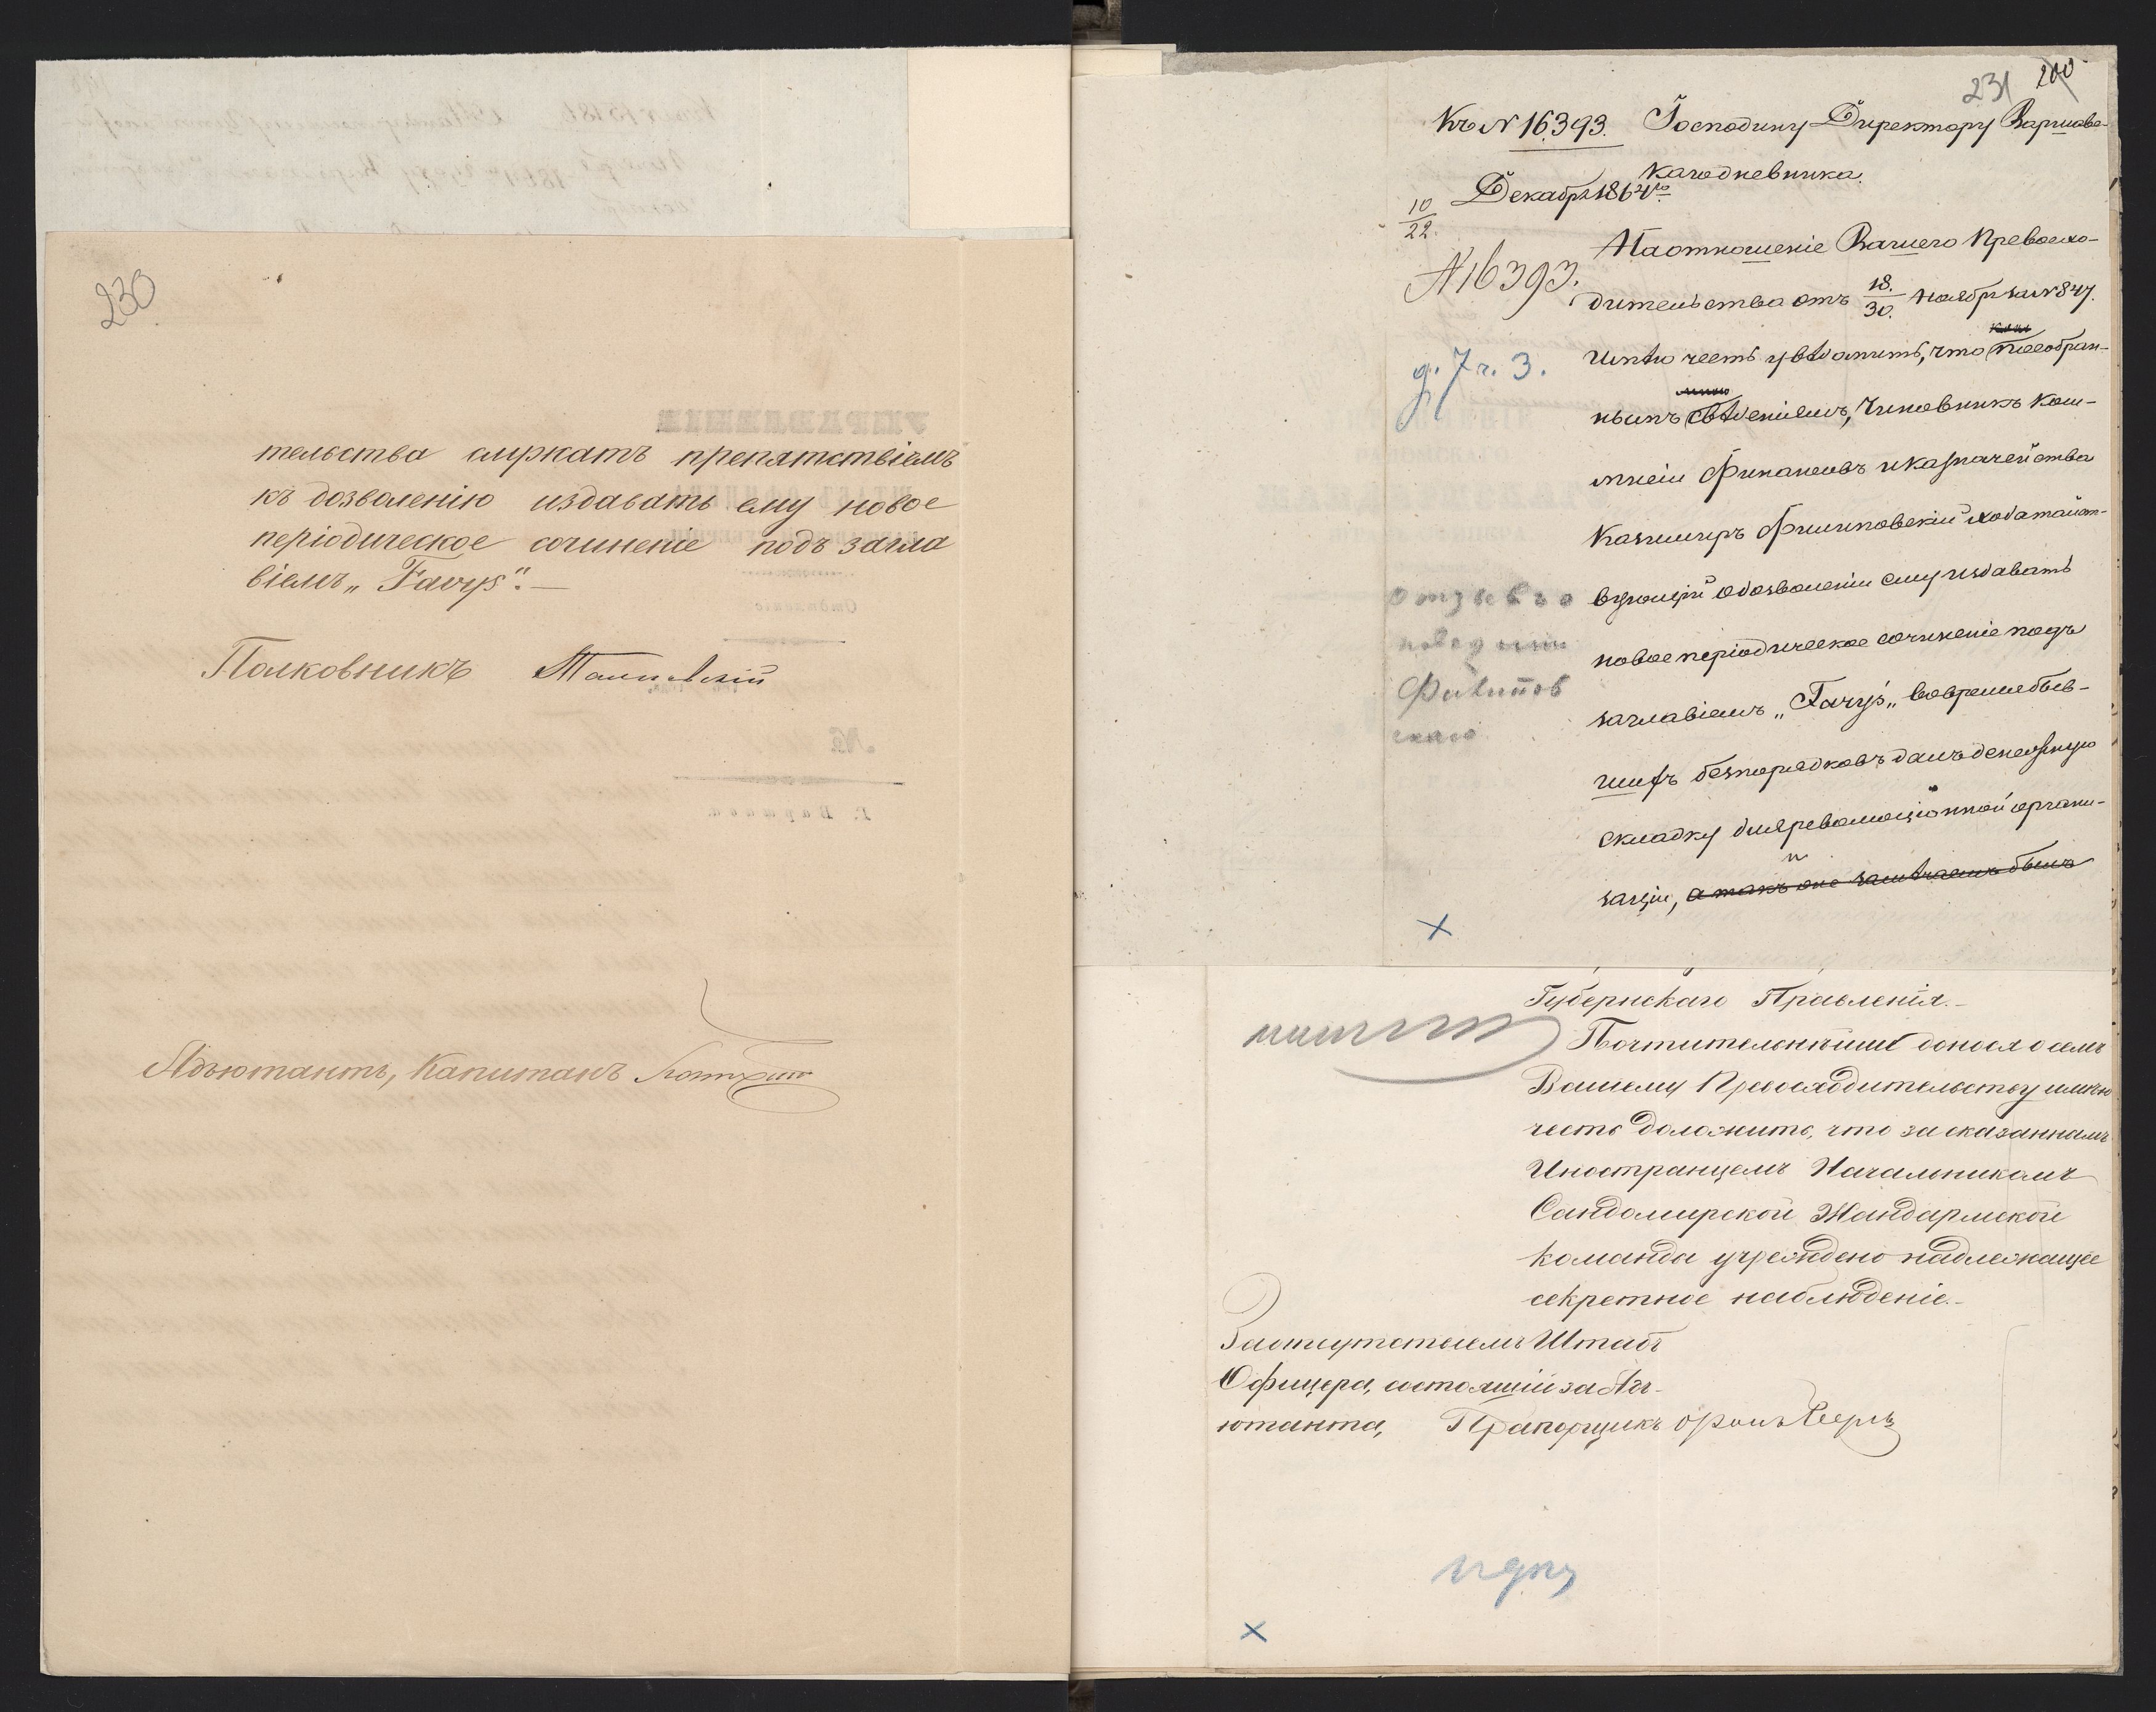 230
тельства служатъ препятствіемъ
къ дозволенію издавать ему новое
періодическое сочиненіе подъ загла
віемъ „Farys“.—
Полковникъ
Адъютантъ, Капитанъ
231 200
Къ N 16393. Господину Директору Варшавс-
каго дневника.
Декабря 1864 го
10/22.
N 16393.
На отношеніе Вашего Превосхо-
дительства отъ 18./30. Ноября за N 847.
имѣю честь увѣдомить, что по собран-
нымъ свѣденіямъ, Чиновникъ Ком-
д. 7 ч. 3.
мисіи Финансовъ и Казначейства
Казимиръ Филиповскій ходатайст-
вующій о дозволеніи ему издавать
новое періодическое сочиненіе подъ
заглавіемъ „Farys„ во время быв-
шихъ безпорядковъ далъ денежную
складку для революціонной органи-
заціи, а такъ же замѣчаемъ былъ
Отзывъ о
поведеніи
Филипов
скаго
Губернскаго Правленія.—
Почтительнѣйше донося о семъ
Вашему Превосходительству имѣю
честь доложить, что за сказаннымъ
Иностранцемъ Начальникомъ
Сандомирской Жандармской
команды учреждено надлежащее
секретное наблюденіе.—
За отсутствіемъ Штабъ
Офицера, состоящій за Адъ-
ютанта, Прапорщикъ